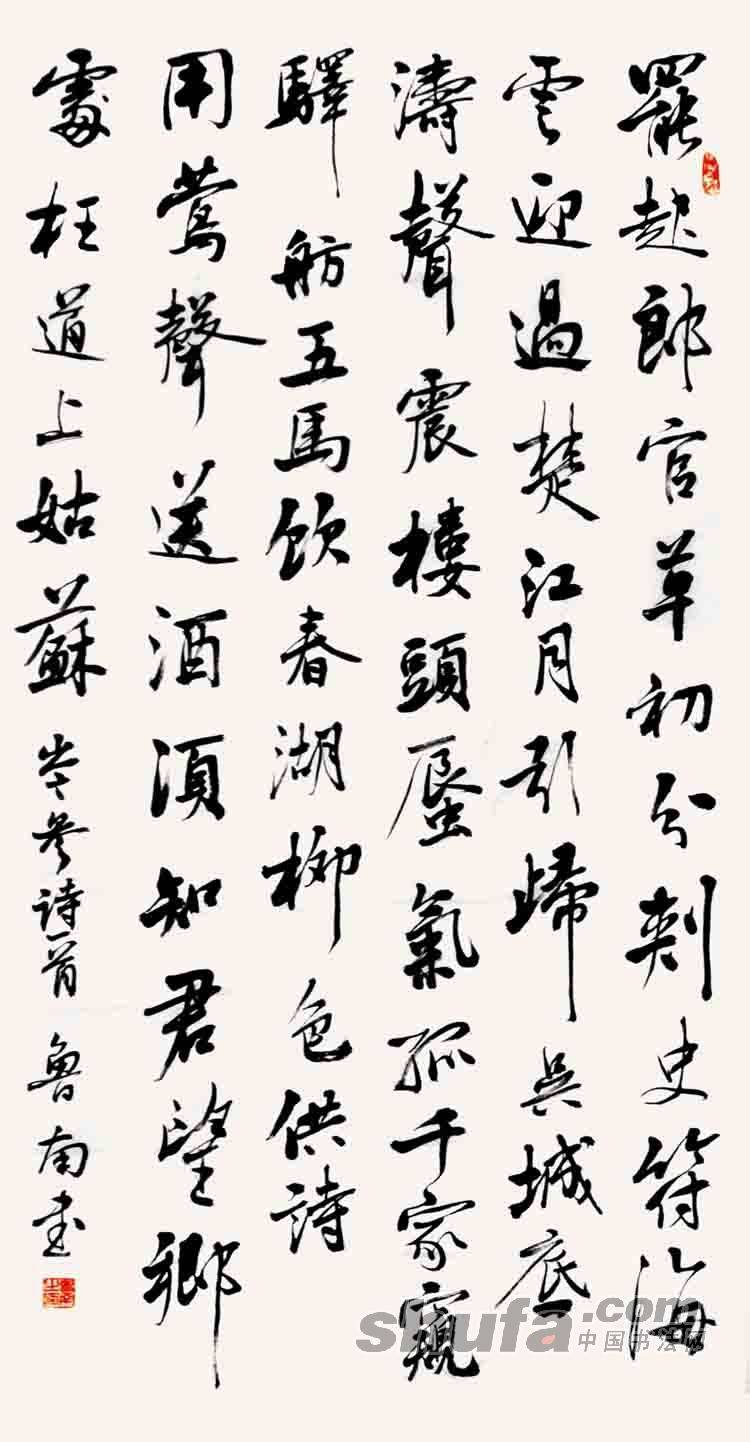 罷起郎官草初分刺史符海
雲迎過楚江月引歸吳城底
濤聲震樓頭蜃氣孤千家窺
驛舫五馬飲春湖柳色供詩
用鶯聲送酒須知君望鄉
處枉道上姑蘇 岑參詩一首 魯南書
shufa.com
中国书法网